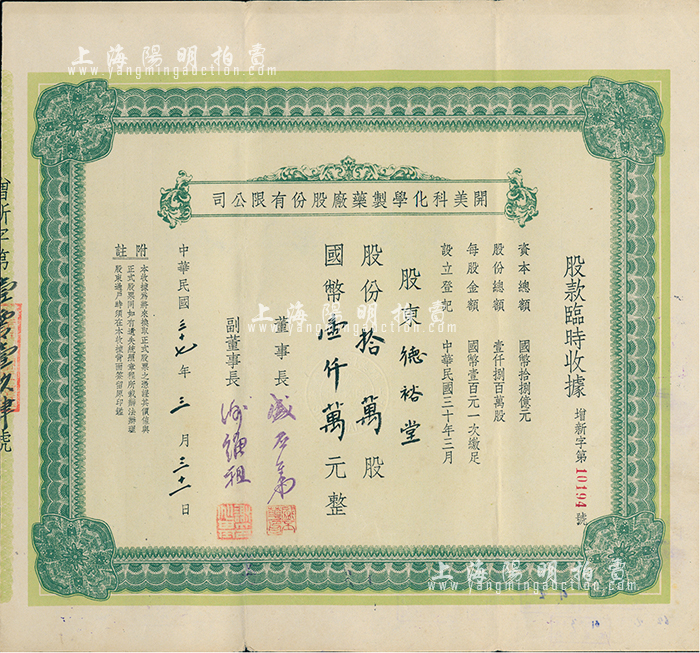 上海陽明拍賣
www.yangmingauction.com
司公限有份股廠藥製學化科美開
股款臨時收據 增新字第10194號
資本總額 國幣拾捌億元
股份總額 壹仟捌百萬股
每股金額 國幣壹百元一次繳足
設立登記 中華民國三十年三月
股東德裕堂
股份拾萬股
國幣壹仟萬元整
董事長
副董事長
中華民國三七年三月三十一日
附註
本收據為將來換取正式股票之憑證其價值與
正式股票同如有遺失統照章程所載辦法辦理
股東過戶時須在本收據背面簽留原印鑑
上海陽明拍賣
www.yangmingauction.com
上海陽明拍賣
www.yangmingauction.com